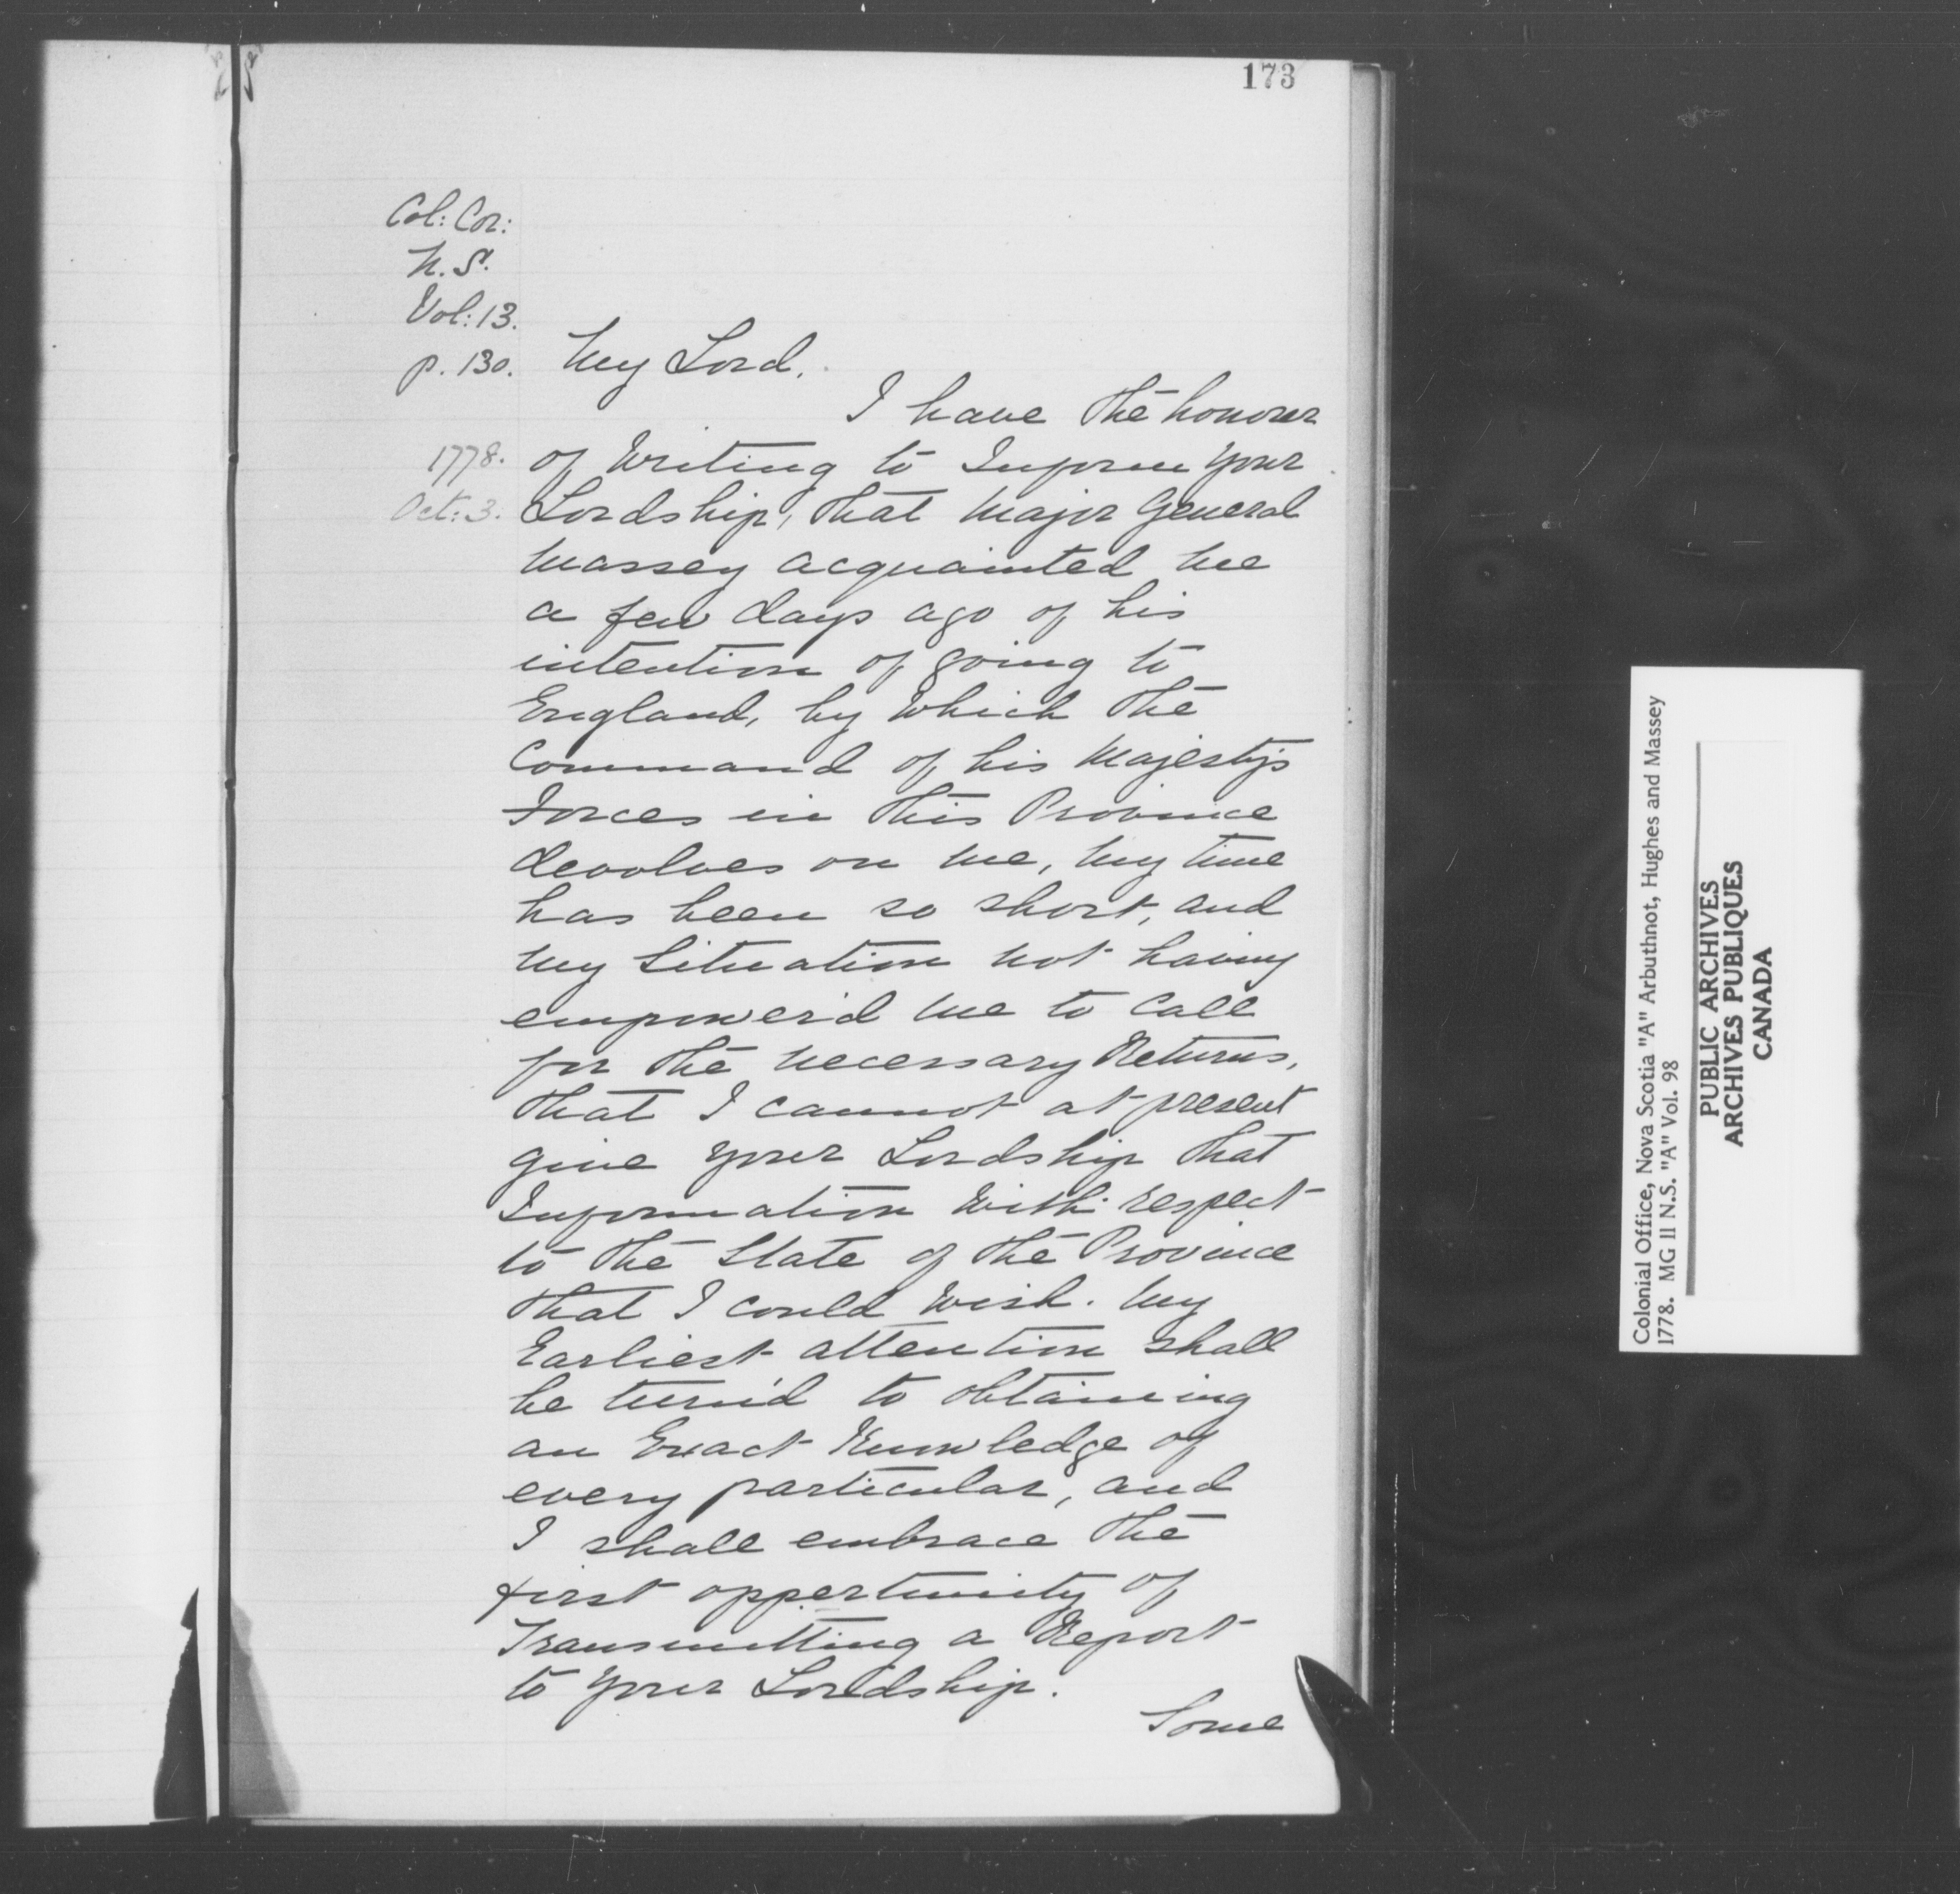 173
Col: Cor:
N.S.
Vol: 13.
p. 130.
My Lord,
I have the honour
1778.
Oct: 3.
of Writing to Inform your
Lordship, that Major General
Massey acquainted me
a few days ago of his
intention of going to
England, by which the
Command of his Majesty's
Forces in this Province
devolves on me, my time
has been so short, and
my Situation not having
empower'd me to Call
for the necessary Returns,
that I cannot at present
give your Lordship that
Information with respect
to the State of the Province
that I could wish. My
Earliest attention shall
be turn'd to obtaining
an Exact Knowledge of
every particular, and
I shall embrace the
first oppertunity of
Transmitting a Report
to your Lordship.
Some
Colonial Office, Nova Scotia "A" Arbuthnot, Hughes and Massey
1778. MG II N.S. "A" Vol. 98
PUBLIC ARCHIVES
ARCHIVES PUBLIQUES
CANADA